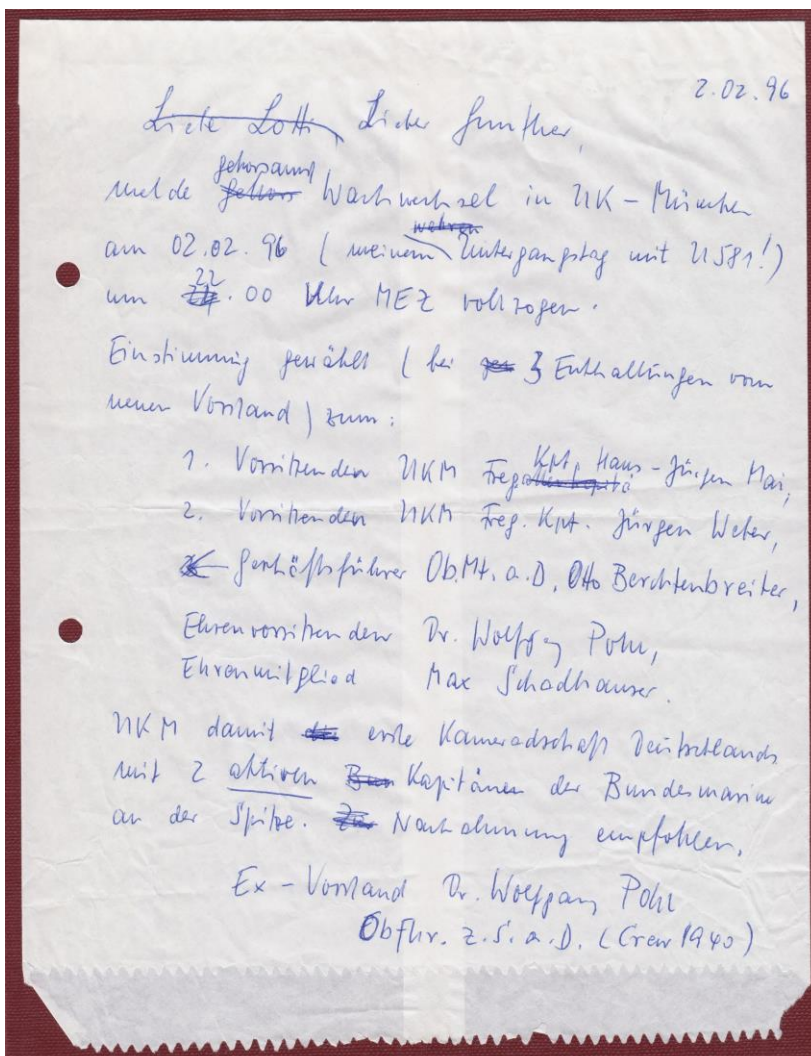 2.02.96
Liebe Lotti, Lieber Gunther,
gehorsamst
melde gehors Wachwechsel in UK – München
wahren
am 02.02.96 ( meinem Untergangstag mit U 581!)
22
um .00 Uhr MEZ vollzogen.
Einstimmig gewählt ( bei 3 Enthaltungen vom
neuen Vorstand ) zum:
1. Vorsitzenden UKM Freg Kpt. Hans-Jürgen Mai,
2. Vorsitzenden UKM Freg. Kpt. Jürgen Weber,
Geschäftsführer Ob.Mt. a.D. Otto Berchtenbreiter,
Ehrenvorsitzender Dr. Wolfgang Pohl,
Ehrenmitglied Max Schadhauser.
UKM damit erste Kameradschaft Deutschlands
mit 2 aktiven Kapitänen der Bundesmarine
an der Spitze. Nachahmung empfohlen.
Ex – Vorstand Dr. Wolfgang Pohl
Obfhr. z.S. a.D. (Crew 1940)